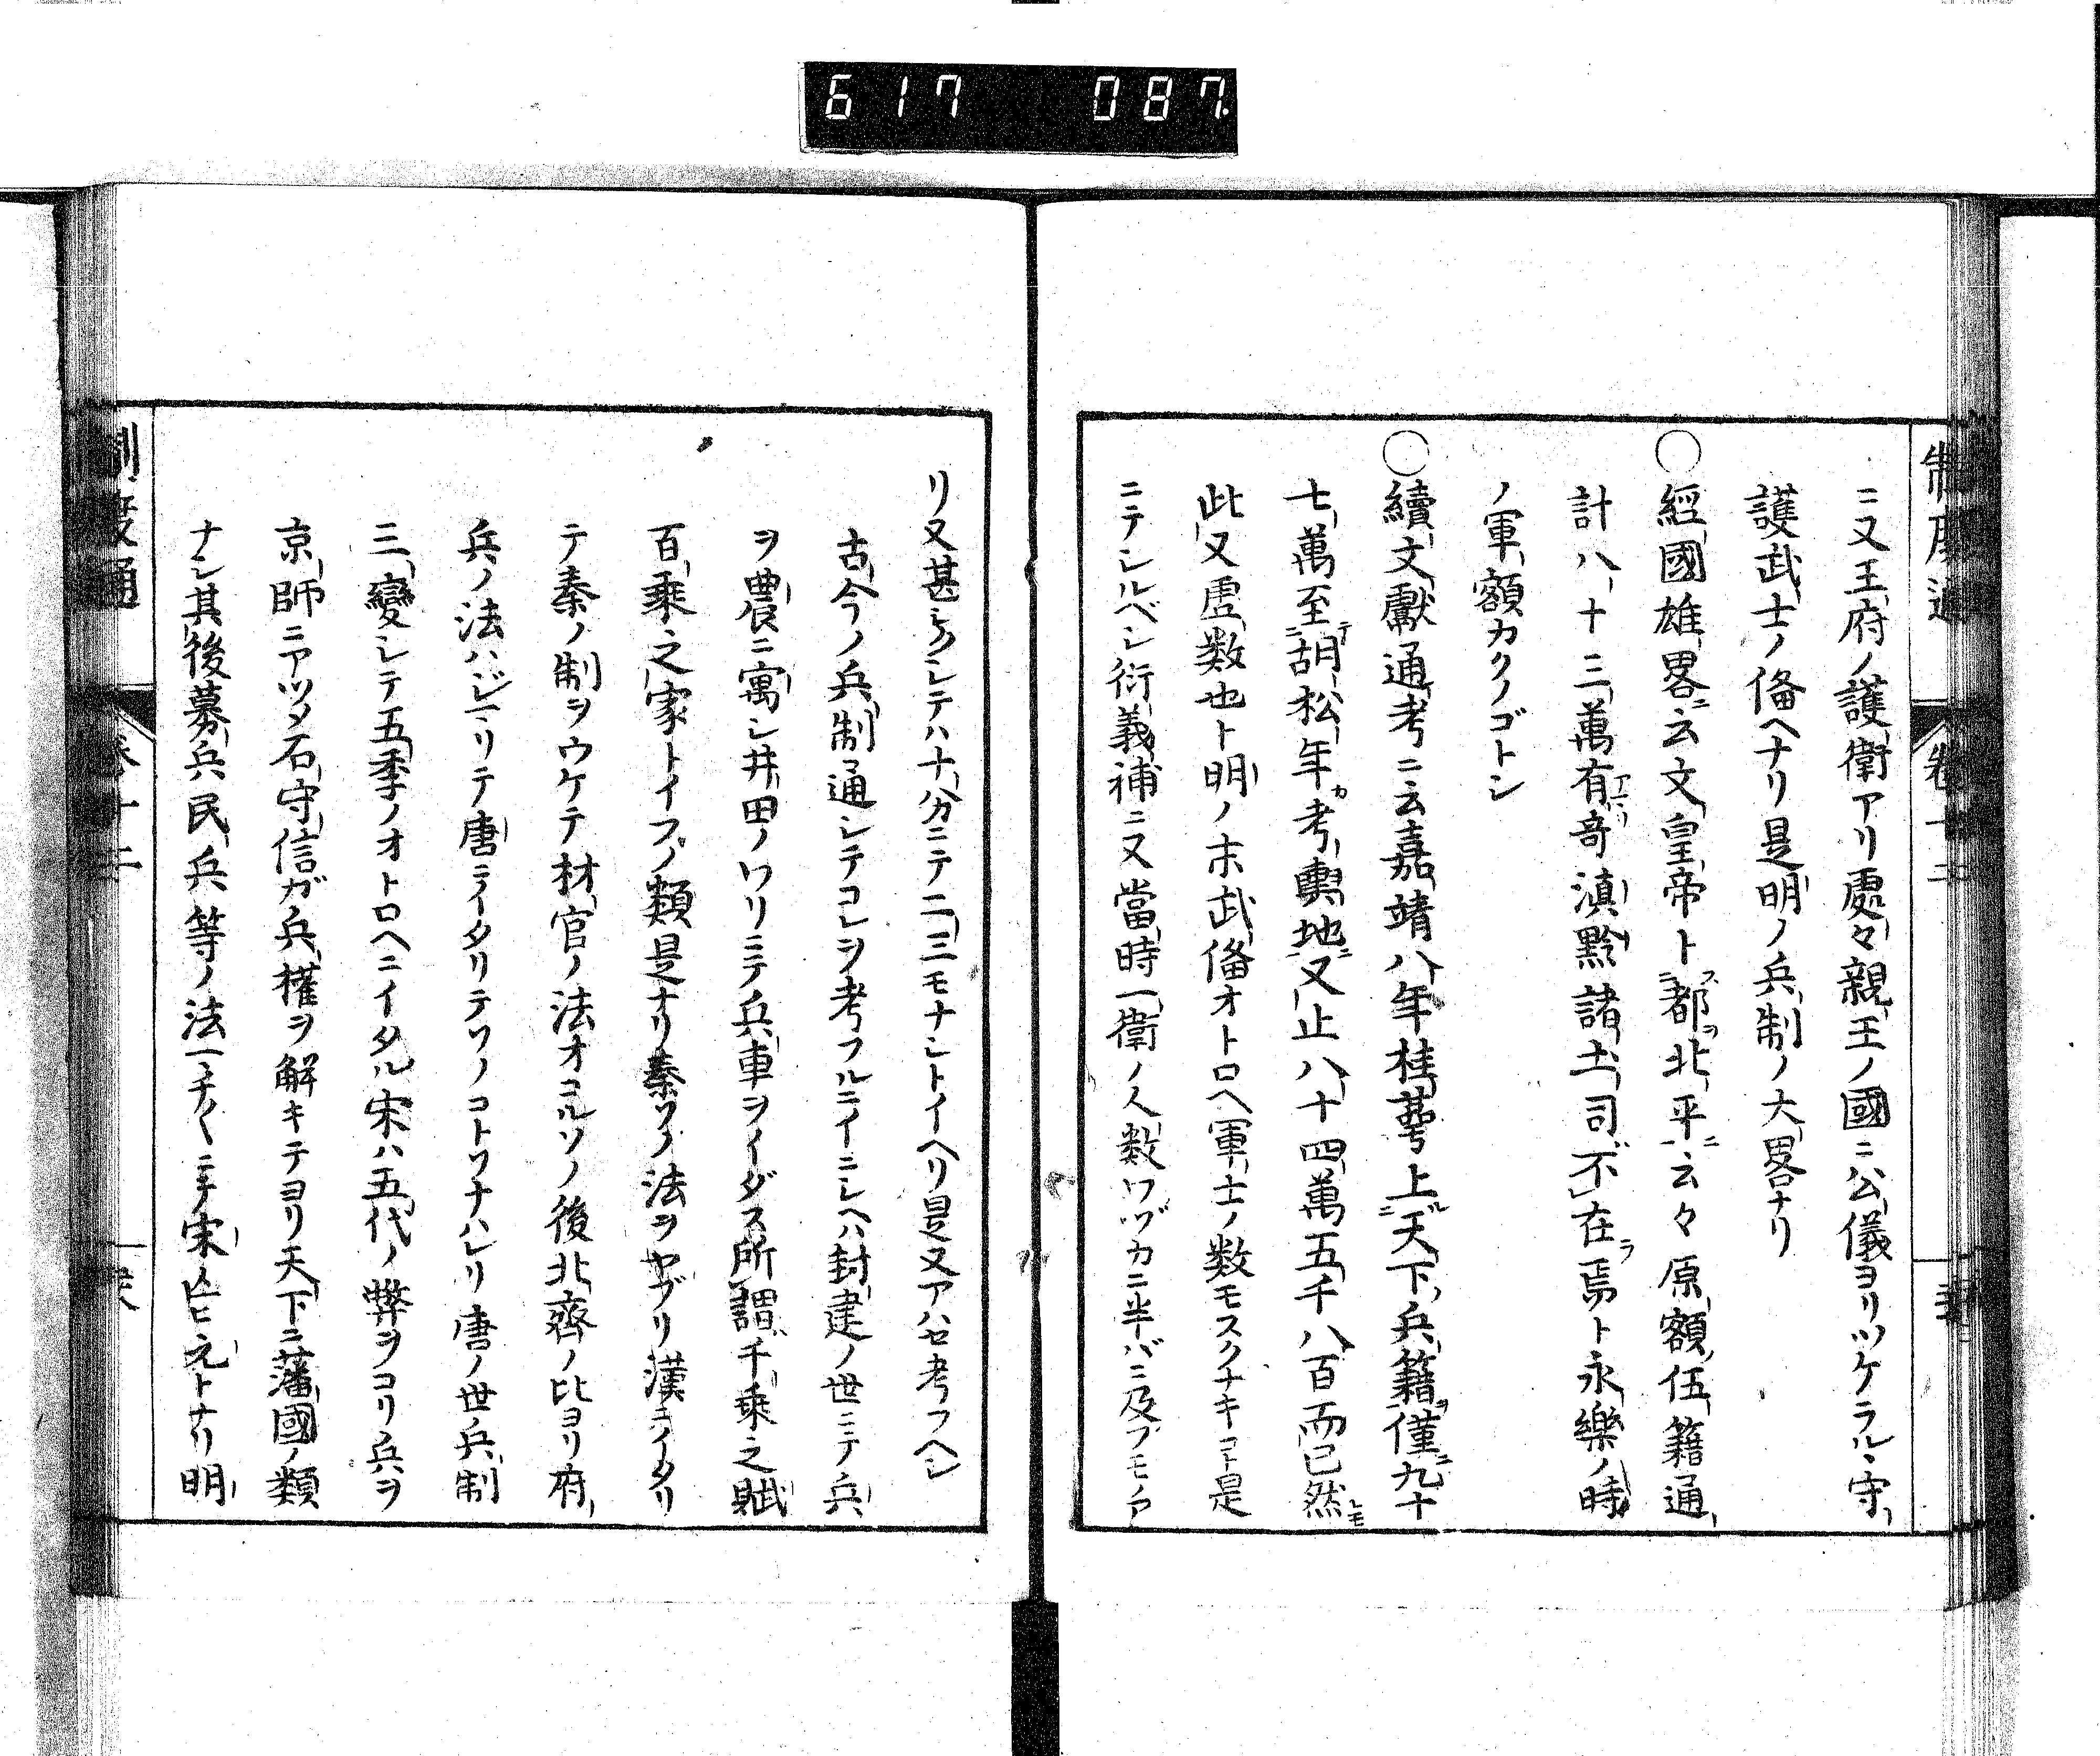 617 087
制度通 卷十二
ニ又王府ノ護衛アリ處々親王ノ國ニ公儀ヨリツケラルヽ守
護武士ノ俻ヘナリ是明ノ兵制ノ大畧ナリ
〇經國雄畧ニ云文皇帝ト都ス北平ニ云々原額伍籍通
計八十三萬有竒滇黔諸土司不在焉ト永樂ノ時
ノ軍額カクノゴトシ
〇續文獻通考ニ云嘉靖八年桂蕚上天下兵籍僅九十
七萬至胡松年考輿地又止八十四萬五千八百而已然
此又虚数也ト明ノ末武俻オトロヘ軍士ノ数モスクナキコト是
ニテシルベシ衍義補ニ又當時一衛ノ人数ワヅカニ半バニ及ブモノア
リ又甚シクシテハ十分ニテ二三モナシトイヘリ是又アハセ考フヘシ
古今ノ兵制通シテコレヲ考フルニイニシヘハ封建ノ世ニテ兵
ヲ農ニ寓シ井田ノワリニテ兵車ヲイダス所謂千乗之賦
百乗之家トイフノ類是ナリ秦ソノ法ヲヤブリ漢ニイタリ
テ秦ノ制ヲウケテ材官ノ法オコルソノ後北齊ノ比ヨリ府
兵ノ法ハジマリテ唐ニイタリテソノコトソナハレリ唐ノ世兵制
三變シテ五季ノオトロヘニイタル宋ハ五代ノ弊ヲコリ兵ヲ
京師ニアツメ石守信ガ兵權ヲ解キテヨリ天下ニ藩國ノ類
ナシ其後募兵民兵等ノ法マチ〱ニテ宋亾ヒ元トナリ明
制度通 卷十二